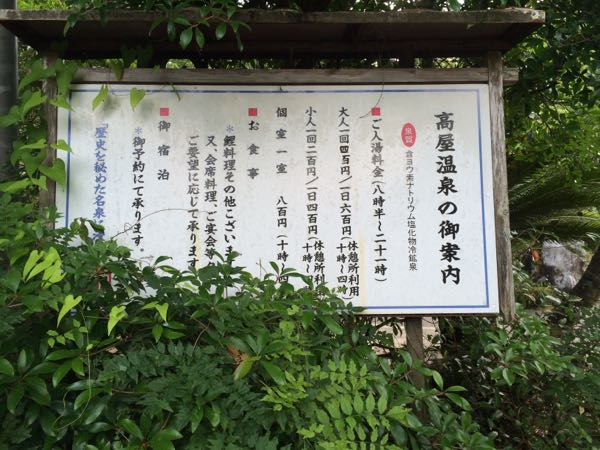 高屋温泉の御案内
泉質 含ヨウ素ナトリウム塩化物冷鉱泉
■ご入湯料金(八時半〜二十一時)
大人一回四百円/一日六百円(十時〜四時)休憩所利用
小人一回二百円/一日四百円(十時〜 休憩所利
個室一室 八百円(十時〜四
■お食事
*鯉料理その他ございま
又、会席料理、ご宴会等
ご要望に応じて承ります
■御宿泊
*御予約にて承ります。
「歴史を秘めた名泉